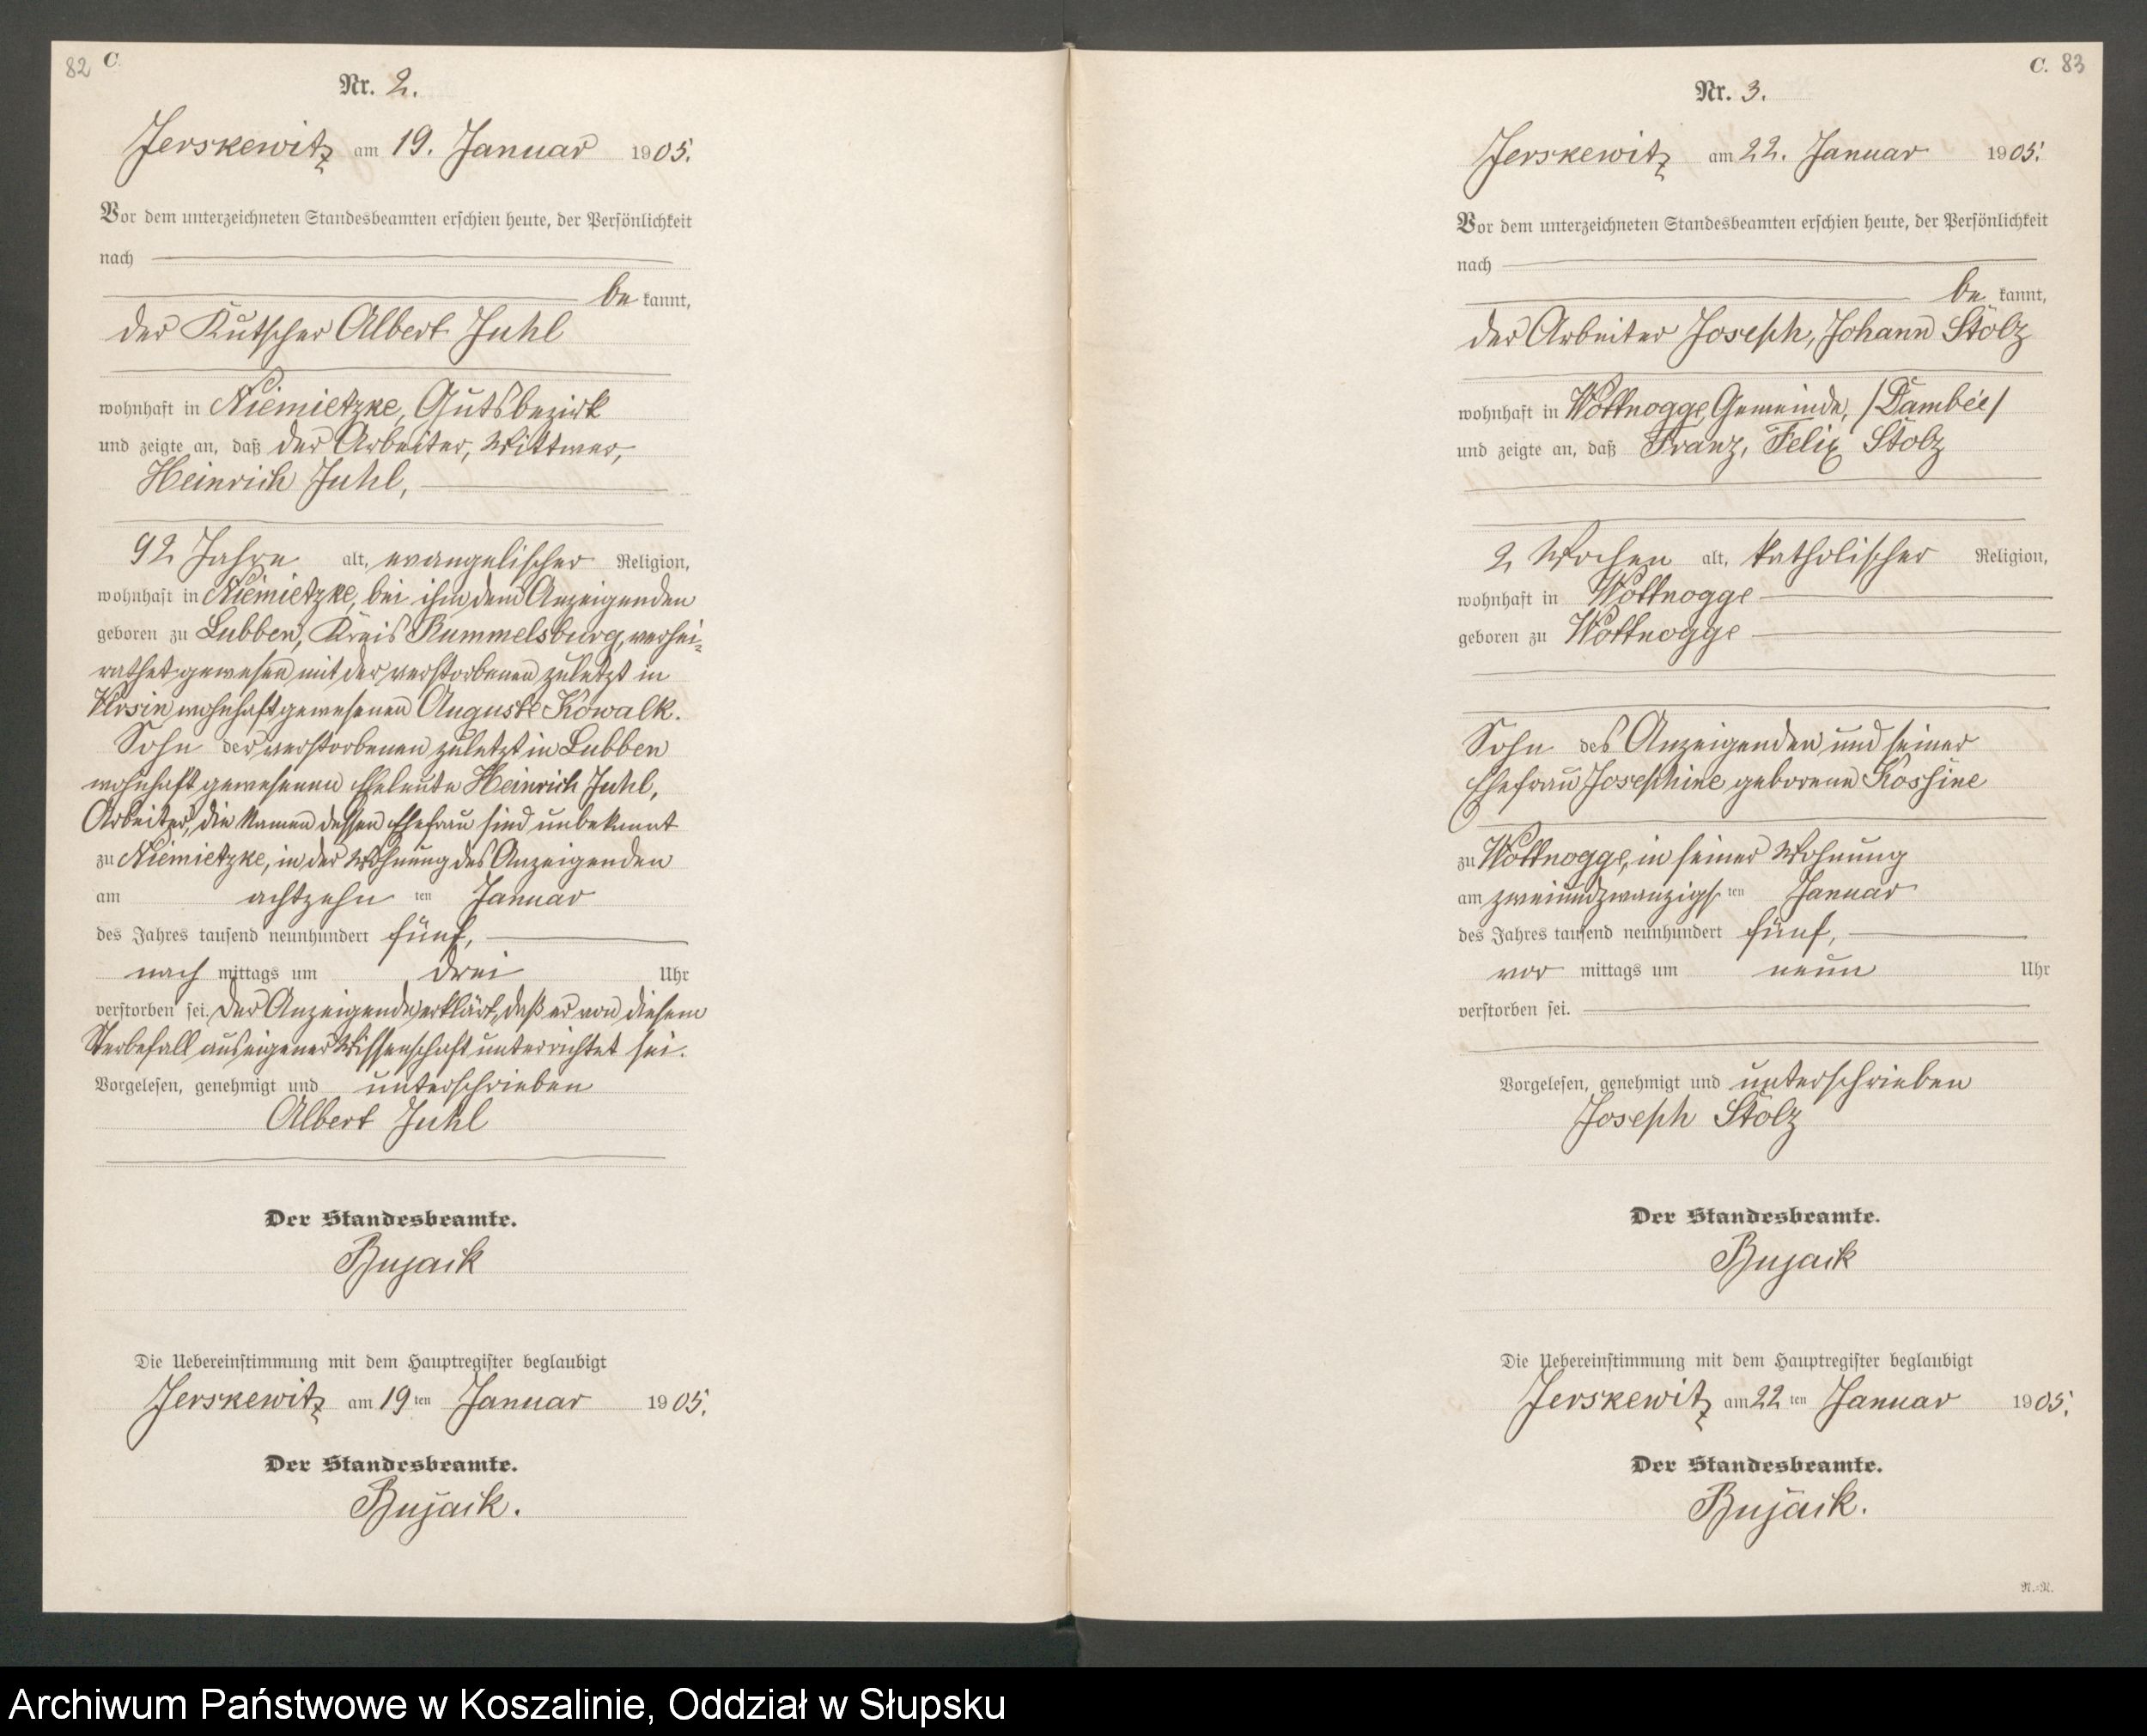 82 C.
Nr. 2.
Jerskewitz am 19. Januar 1905.
Vor dem unterzeichneten Standesbeamten erschien heute, der Persönlichkeit
nach
be kannt,
der Kutscher Albert Juhl
wohnhaft in Niemietzke, Gutsbezirk
und zeigte an, daß der Arbeiter, Wittwer,
Heinrich Juhl,
92 Jahre alt, evangelischer Religion,
wohnhaft in Niemietzke, bei ihm dem Anzeigenden
geboren zu Lubben, Kreis Rummelsburg, verhei-
rathet gewesen mit der verstorbenen zuletzt in
wohnhaft gewesenen Auguste Kowalk.
Sohn der verstorbenen zuletzt in Lubben
wohnhaft gewesenen Eheleute Heinrich Juhl,
Arbeiter, die Namen dessen Ehefrau sind unbekannt
zu Niemietzke, in der Wohnung des Anzeigenden
am achtzehn ten Januar
des Jahres tausend neunhundert fünf,
nach mittags um drei Uhr
verstorben sei. Der Anzeigende erklärt, daß er von diesem
Sterbefall aus eigener Wissenschaft unterrichtet sei.
Vorgelesen, genehmigt und unterschrieben
Albert Juhl
Der Standesbeamte.
Bujack
Die Uebereinstimmung mit dem Hauptregister beglaubigt
Jerskewitz am 19 ten Januar 1905.
Der Standesbeamte.
Bujack.
C. 83
Nr. 3.
Jerskewitz am 22. Januar 1905.
Vor dem unterzeichneten Standesbeamten erschien heute, der Persönlichkeit
nach
be kannt,
der Arbeiter Joseph, Johann Stolz
wohnhaft in Wottnogge, Gemeinde, /Dambée/
und zeigte an, daß Franz, Felix Stolz
2 Wochen alt, katholischer Religion,
wohnhaft in Wottnogge
geboren zu Wottnogge
Sohn des Anzeigenden und seiner
Ehefrau Josephine geborene
zu Wottnogge, in seiner Wohnung
am zweiundzwanzigs ten Januar
des Jahres tausend neunhundert fünf,
vor mittags um neun Uhr
verstorben sei.
Vorgelesen, genehmigt und unterschrieben
Joseph Stolz
Der Standesbeamte.
Bujack
Die Uebereinstimmung mit dem Hauptregister beglaubigt
Jerskewitz am 22 ten Januar 1905.
Der Standesbeamte.
Bujack.
N.-N.
Archiwum Państwowe w Koszalinie, Oddział w Słupsku